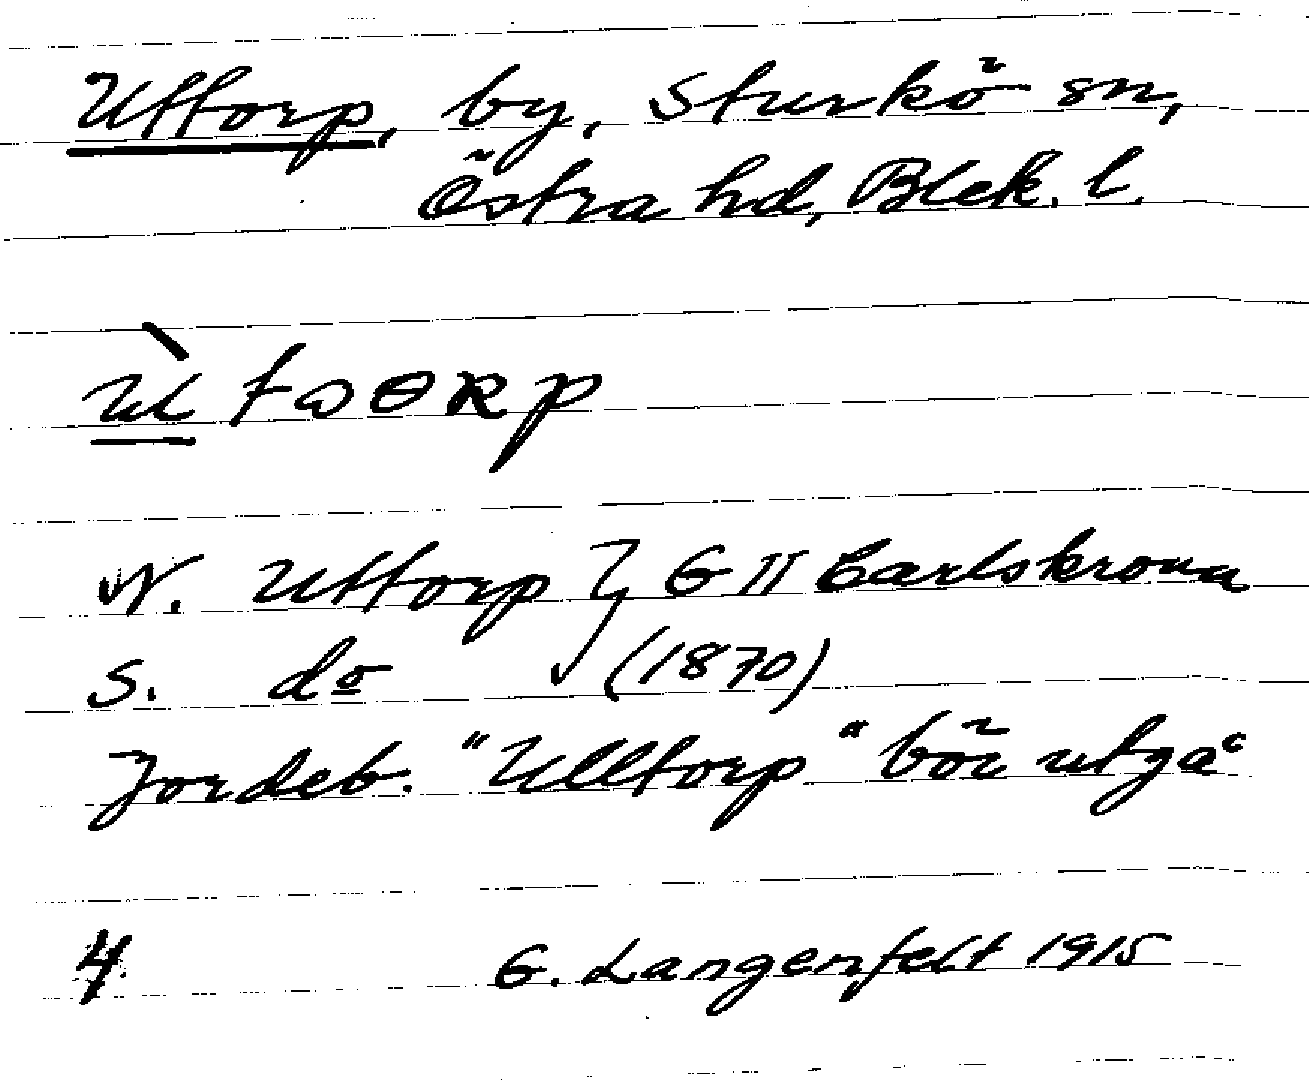 Uttorp, by, Sturkö sn,
Östra hd, Blek. l.
ùtωθʀp
N. Uttorp } G II Carlskrona
S. dº (1870)
Jordeb. "Ulltorp" bör utgå
4 G. Langenfelt 1915